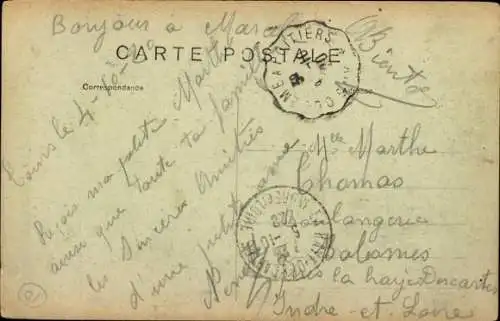 Bonjour à Marcel
CARTE POSTALE
Correspondance
Tours le 4-8
Reçois ma petite Marthe
ainsi que toute ta famille
les sincères Amitiés
d'une petite amie
Bientôt
Mlle Marthe
Thomas
Boulangerie
Balesmes
près la haye Descartes
Indre-et-Loire